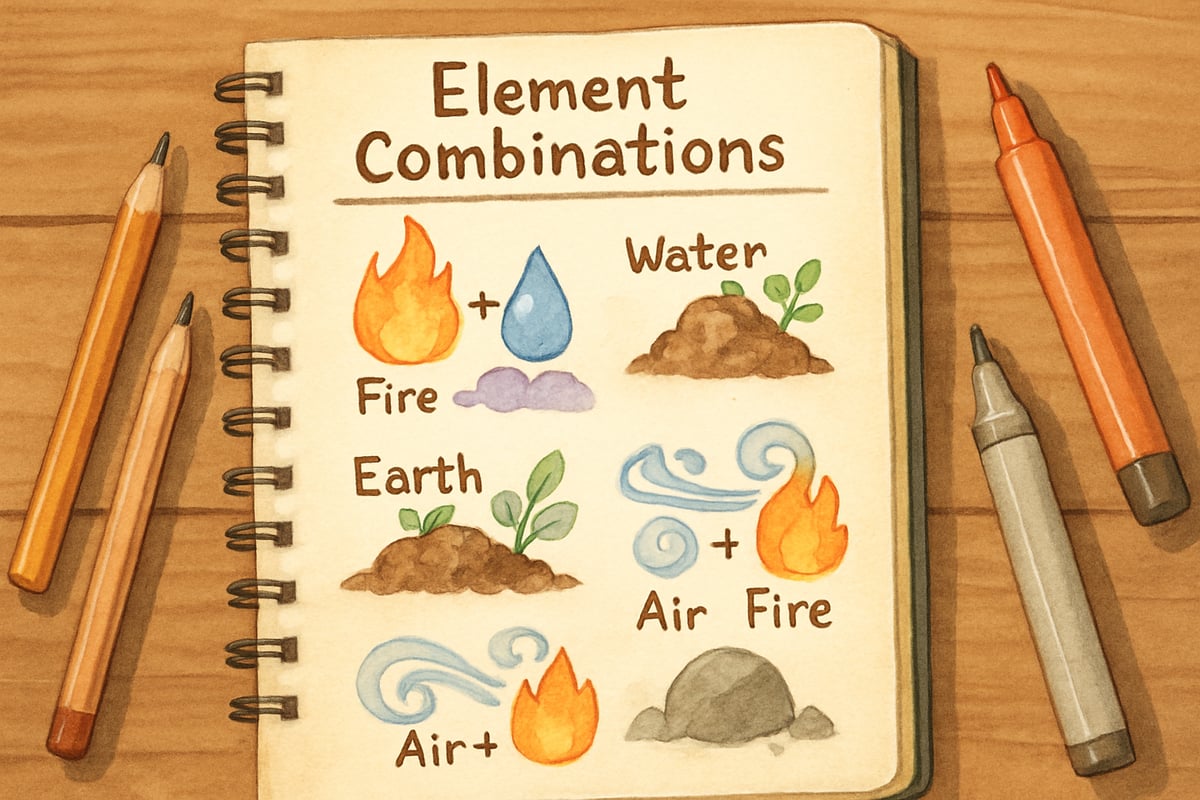 Element
Combinations
+
Water
Fire
Earth
+
Air Fire
Air+